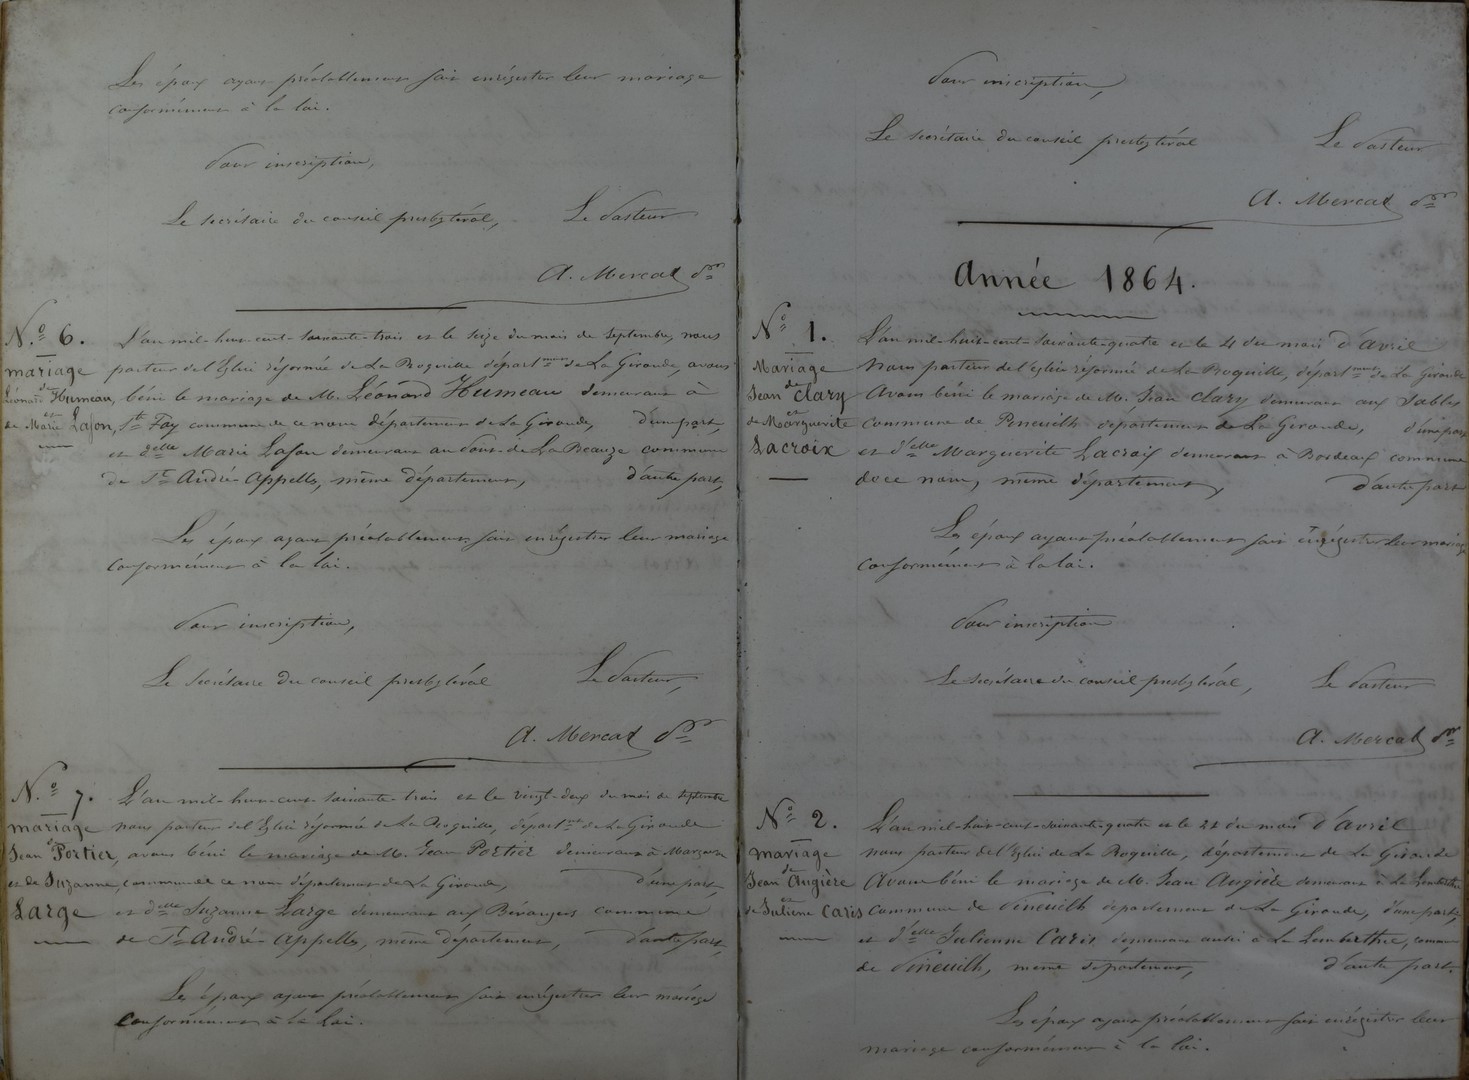 Les époux ayant préalablement fait enrégistrer leur mariage
conformément à la loi.
Pour inscription,
Le secrétaire du conseil presbytéral, Le Pasteur
A. Mercat pr
N.o 6.
mariage
de
Léonard Humeau,
et
de Marie Lafon,
L'an mil-huit-cent-soixante-trois et le seize du mois de septembre, nous
pasteur de l'Eglise réformée de La Roquille départment de La Gironde, avons
béni le mariage de M. Léonard Humeau demeurant à
Ste Foy commune de ce nom département de La Gironde, d'une part,
et delle Marie Lafon demeurant au Pont-de-La Beauze commune
de St André-Appelles, même département, d'autre part,
Les époux ayant préalablement fait enrégistrer leur mariage
conformément à la loi.
Pour inscription,
Le secrétaire du conseil presbytéral Le Pasteur,
A. Mercat pr
N.o 7.
mariage
de
Jean Portier,
et de Suzanne
Large
L'an mil-huit-cent-soixante-trois et le vingt-deux du mois de septembre
nous pasteur de l'Eglise réformée de La Roquille, départment de La Gironde
avons béni le mariage de M. Jean Portier demeurant à
commune de ce nom département de La Gironde, d'une part,
et delle Suzanne Large demeurant aux Bérangers commune
de St André-Appelles, même département, d'autre part,
Les époux ayant préalablement fait enrégistrer leur mariage
conformément à la loi.
Pour inscription,
Le secrétaire du conseil presbytéral Le Pasteur
A. Mercat pr
Année 1864.
No 1.
Mariage
de
Jean Clary
et
de Marguerite
Lacroix
L'an mil-huit-cent-soixante-quatre et le 4 du mois d'avril
Nous pasteur de l'église réformée de La Roquille, départment de La Gironde
Avons béni le mariage de M. Jean Clary demeurant aux Sables
commune de Pineuilh département de La Gironde, d'une part
et delle Marguerite Lacroix demeurant à Bordeaux commune
de ce nom, même département, d'autre part
Les époux ayant préalablement fait enrégistrer leur mariage
conformément à la loi.
Pour inscription
Le secrétaire du conseil presbytéral, Le Pasteur
A. Mercat pr
No 2.
mariage
de
Jean Augière
et
de Julienne Caris
L'an mil-huit-cent-soixante-quatre et le 22 du mois d'avril
nous pasteur de l'Eglise de La Roquille, département de La Gironde
Avons béni le mariage de M. Jean Augière demeurant à La
Commune de Pineuilh département de La Gironde, d'une part,
et delle Julienne Caris demeurant aussi à La Lamberthie, commune
de Pineuilh, même département, d'autre part.
Les époux ayant préalablement fait enrégistrer leur
mariage conformément à la loi.